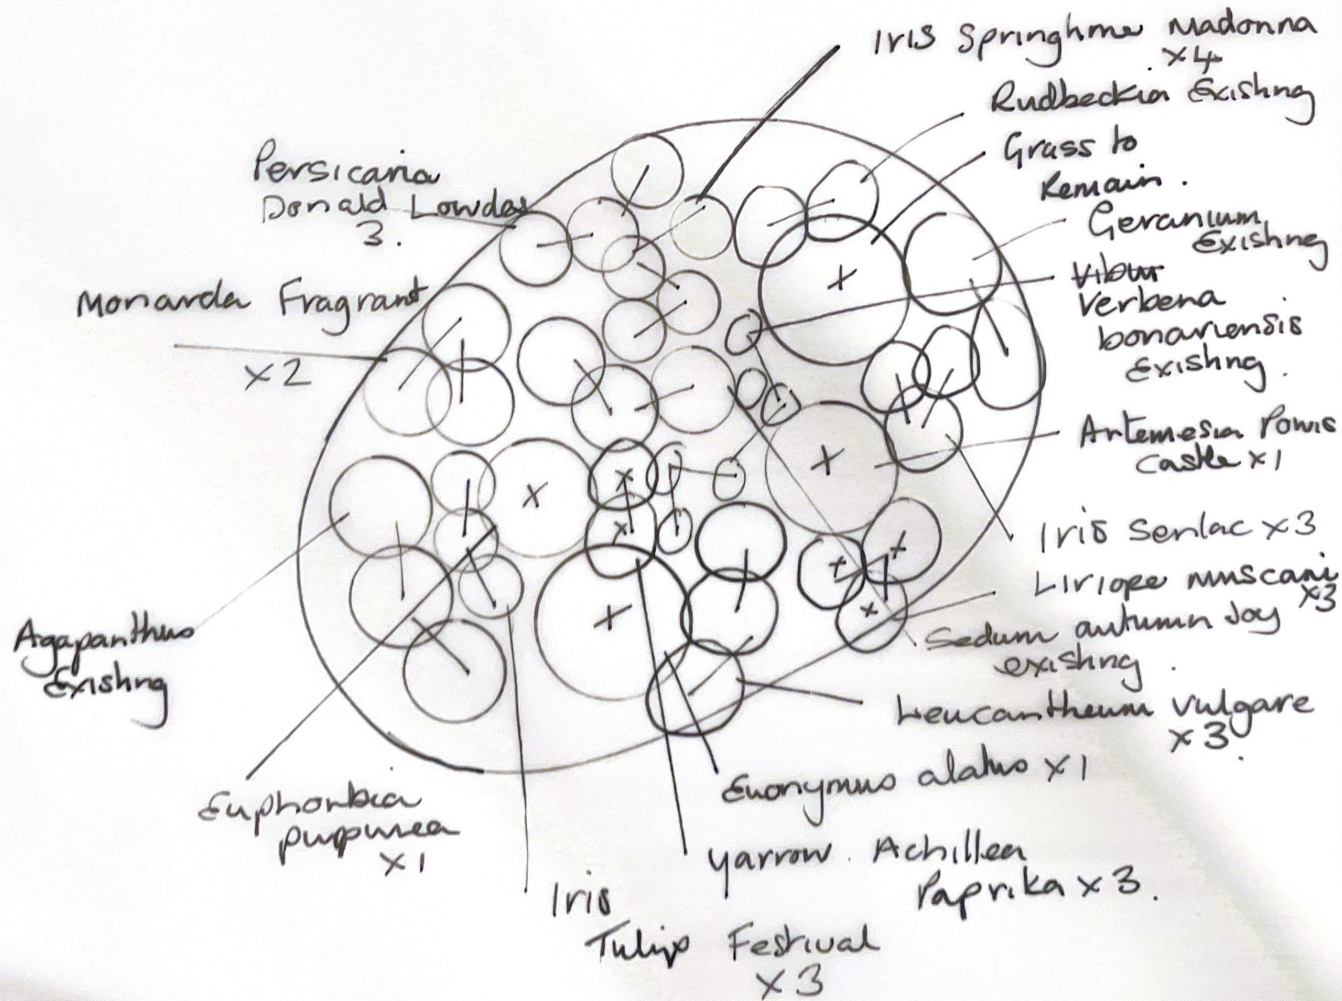 Iris Springtime Madonna
x4
Rudbeckia Existing
Grass to
Remain.
Geranium
Existing
Verbena
bonariensis
Existing.
Artemesia Powis
Castle x1
Iris Senlac x3
Liriope muscari
x3
Sedum autumn Joy
existing.
Leucantheum vulgare
x3.
Euonymus alatus x1
Yarrow. Achillea
Paprika x3.
Iris
Tulip Festival
x3
Euphorbia
purpurea
x1
Agapanthus
Existing
Monarda Fragrant
x2
Persicaria
Donald Lowdes
3.